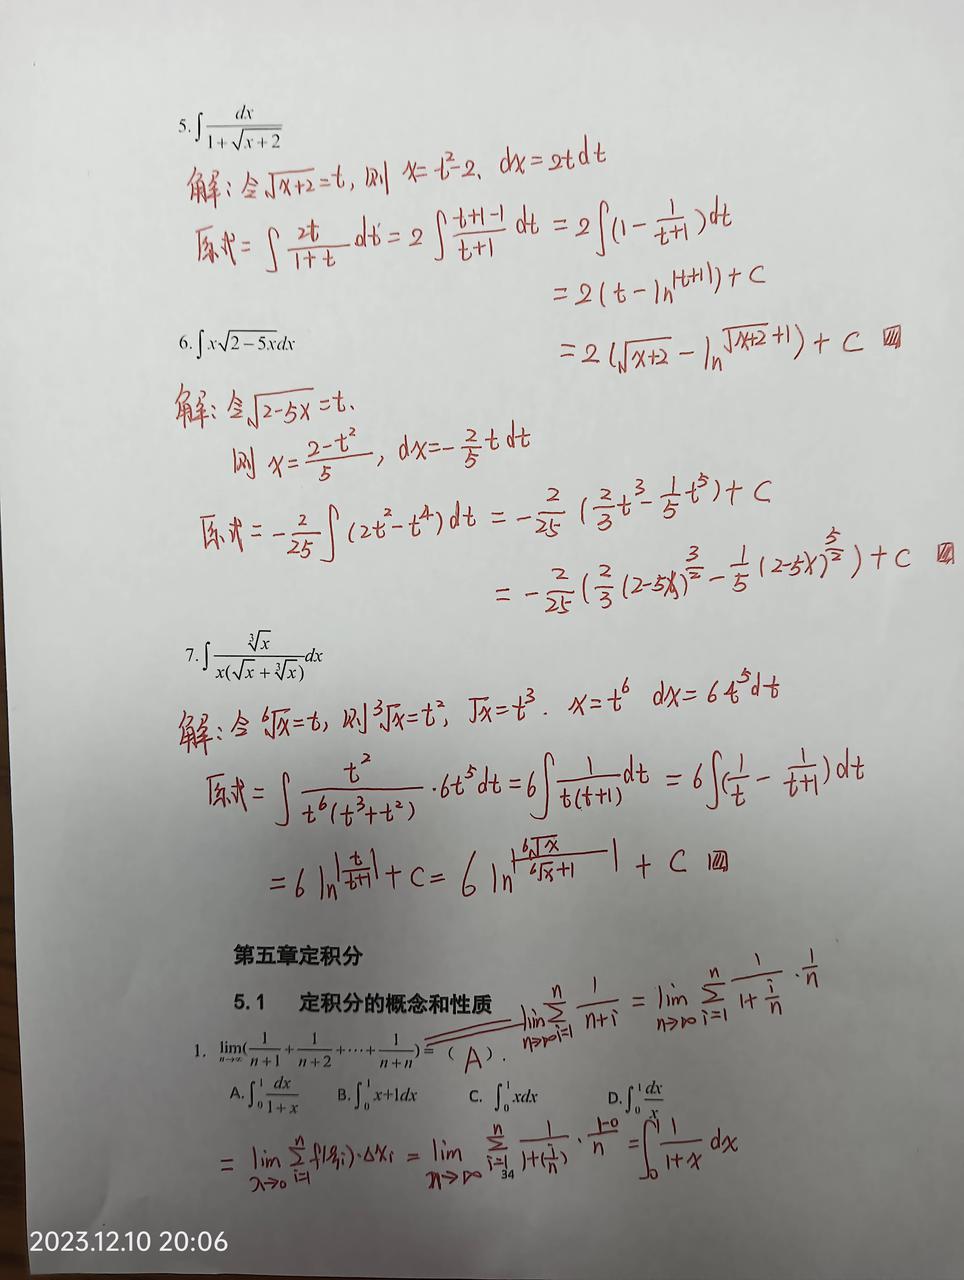 5. ∫ dx/(1+√(x+2))
解: 令√(x+2)=t, 则 x=t²-2, dx=2tdt
原式=∫ 2t/(1+t) dt = 2∫ (t+1-1)/(t+1) dt = 2∫(1 - 1/(t+1))dt
= 2(t - ln|t+1|) + C
= 2(√(x+2) - ln(√(x+2)+1)) + C
6. ∫x√(2-5x)dx
解: 令√(2-5x)=t,
则 x=(2-t²)/5, dx=-2/5 t dt
原式=-2/25∫(2t²-t⁴)dt = -2/25(2/3 t³ - 1/5 t⁵) + C
= -2/25(2/3(2-5x)^(3/2) - 1/5(2-5x)^(5/2)) + C
7. ∫ ∛x/(x(√x+∛x)) dx
解: 令 ⁶√x=t, 则 ³√x=t², √x=t³. x=t⁶ dx=6t⁵dt
原式=∫ t²/(t⁶(t³+t²)) ·6t⁵dt = 6∫ 1/(t(t+1)) dt = 6∫(1/t - 1/(t+1))dt
= 6 ln|t/(t+1)| + C = 6 ln|⁶√x/(⁶√x+1)| + C
第五章定积分
5.1 定积分的概念和性质
lim_{n→∞} ∑_{i=1}^{n} 1/(n+i) = lim_{n→∞} ∑_{i=1}^{n} 1/(1+i/n) · 1/n
1. lim_{n→∞}(1/(n+1) + 1/(n+2) + ⋯ + 1/(n+n)) = ( A ).
A. ∫₀¹ dx/(1+x) B. ∫₀¹ x+1dx C. ∫₀¹ xdx D. ∫₀¹ dx/x
= lim_{λ→0} ∑_{i=1}^{n} f(ξi)·Δxi = lim_{n→∞} ∑_{i=1}^{n} 1/(1+(i/n)) · (1-0)/n = ∫₀¹ 1/(1+x) dx
34
2023.12.10 20:06